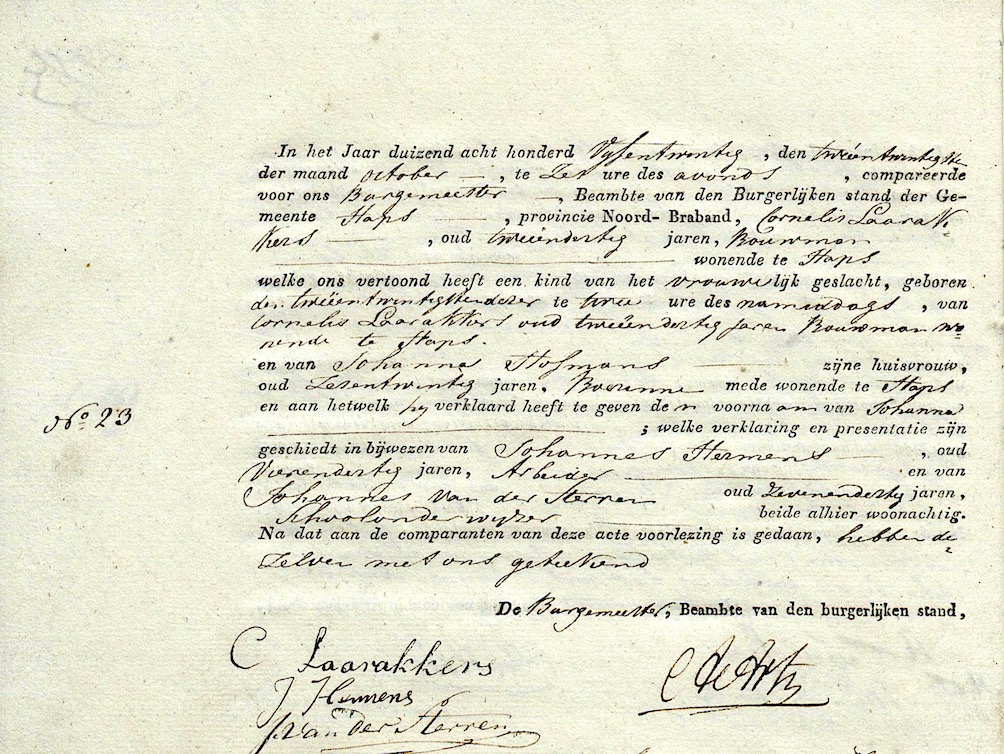 In het Jaar duizend acht honderd Vyfentwintig, den tweëentwintigste
der maand october —, te Zes ure des avonds, compareerde
voor ons Burgemeester —, Beambte van den Burgerlijken stand der Ge-
meente Haps —, provincie Noord-Braband, Cornelis Laarak-
kers —, oud tweëendertig jaren, Bouwman
— wonende te Haps
welke ons vertoond heeft een kind van het vrouwelijk geslacht, geboren
den tweëentwintigsten dezer te twee ure des namiddags, van
Cornelis Laarakkers oud tweëendertig jaren Bouwman wo-
nende te Haps.
en van Johanna Hofmans — zijne huisvrouw,
oud Zesentwintig jaren, Boerinne mede wonende te Haps
en aan hetwelk hy verklaard heeft te geven den voornaam van Johanna
— ; welke verklaring en presentatie zijn
geschiedt in bijwezen van Johannes Hermens —, oud
Vierendertig jaren, Arbeider — en van
No 23
Johannes van der Sterren oud Zevenendertig jaren,
Schoolonderwyzer — beide alhier woonachtig.
Na dat aan de comparanten van deze acte voorlezing is gedaan, hebben de-
zelven met ons geteekend
De Burgemeester, Beambte van den burgerlijken stand,
C Laarakkers
J Hermens
J. van der Sterren